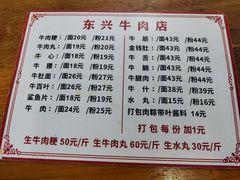 东兴牛肉店
牛肉粳：/面20元 /粉21元
牛肉丸：/面19元 /粉20元
牛 心：/面18元 /粉20元
牛 腰：/面18元 /粉20元
牛肚面：/面26元 /粉27元
牛百叶：/面26元 /粉27元
鲨鱼片：/面18元 /粉19元
牛 肉：/面24元 /粉25元
牛 筋：/面43元 /粉44元
金钱肚：/面43元 /粉44元
牛 舌：/面43元 /粉44元
牛 腩：/面43元 /粉44元
牛腱肉：/面43元 /粉44元
牛 什：/面38元 /粉39元
水 丸：/面15元 /粉16元
打包肉粽带叶酱料 14元
打包每份加1元
生牛肉粳 50元/斤 生牛肉丸 60元/斤 生水丸 30元/斤